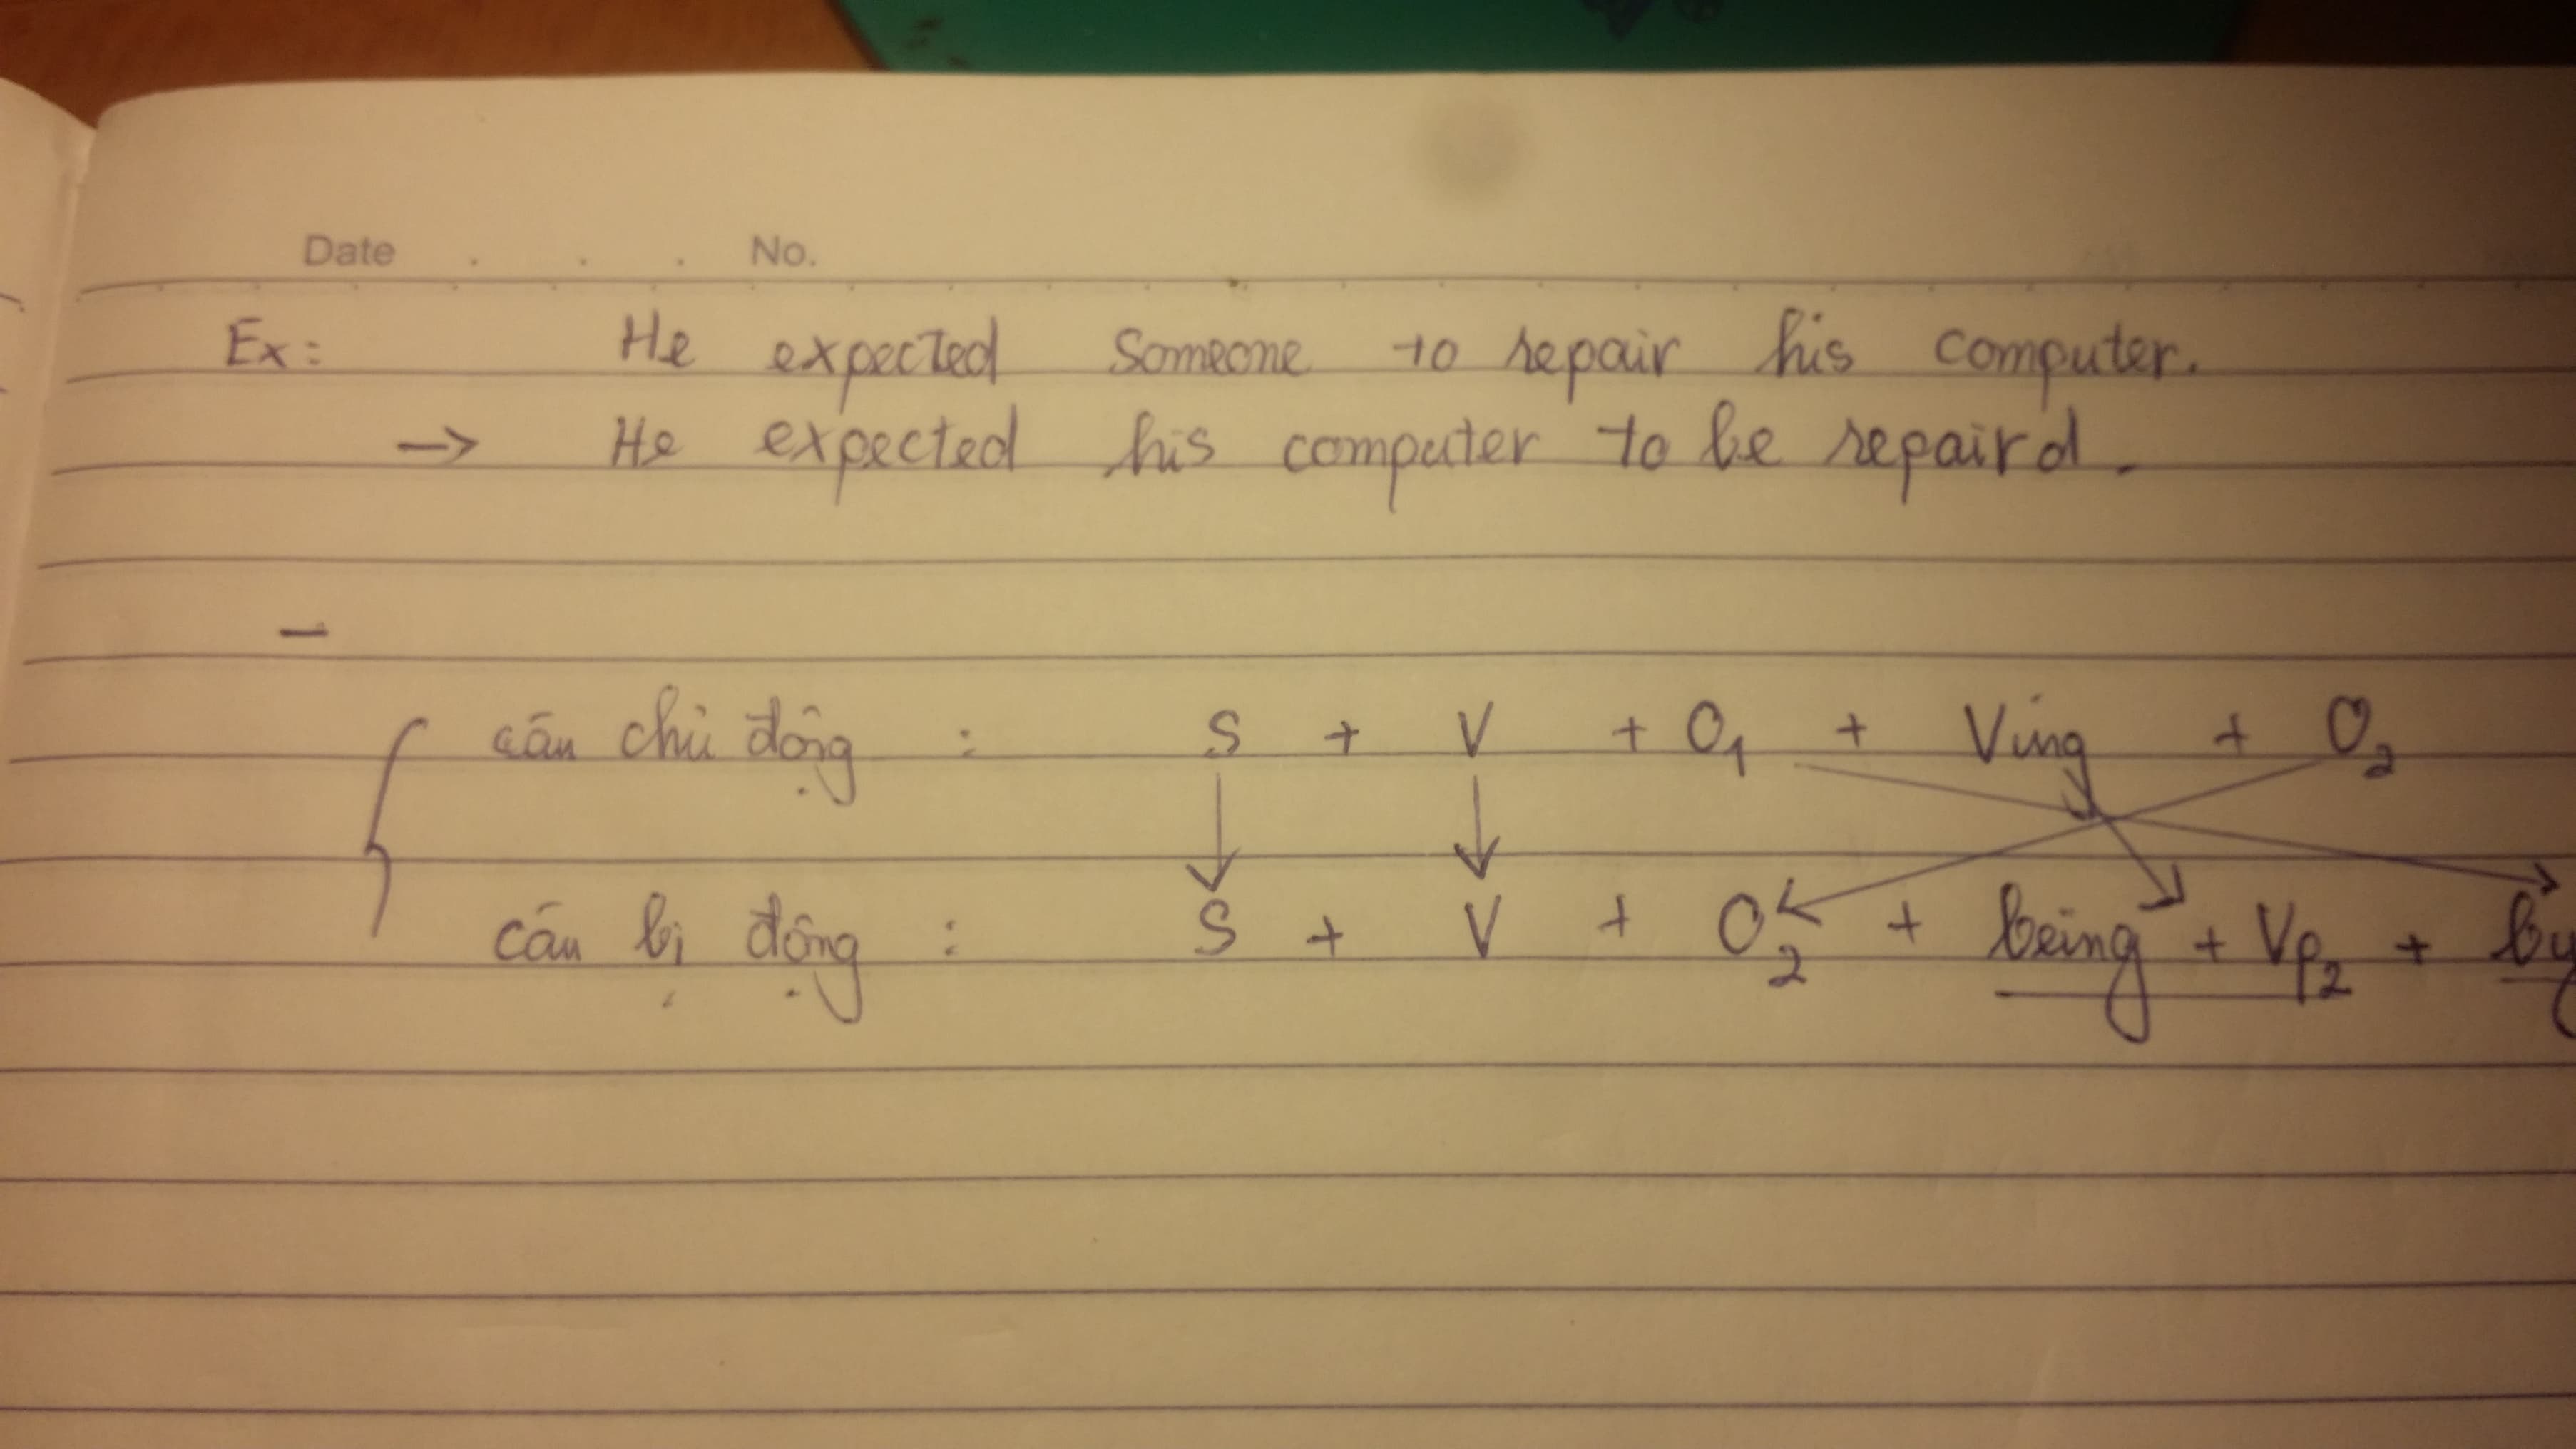 Date . . . No.
Ex: He expected someone to repair his computer.
→ He expected his computer to be repaird.
–
câu chủ động : S + V + O1 + Ving + O2
câu bị động : S + V + O2 + being + Vp2 + by